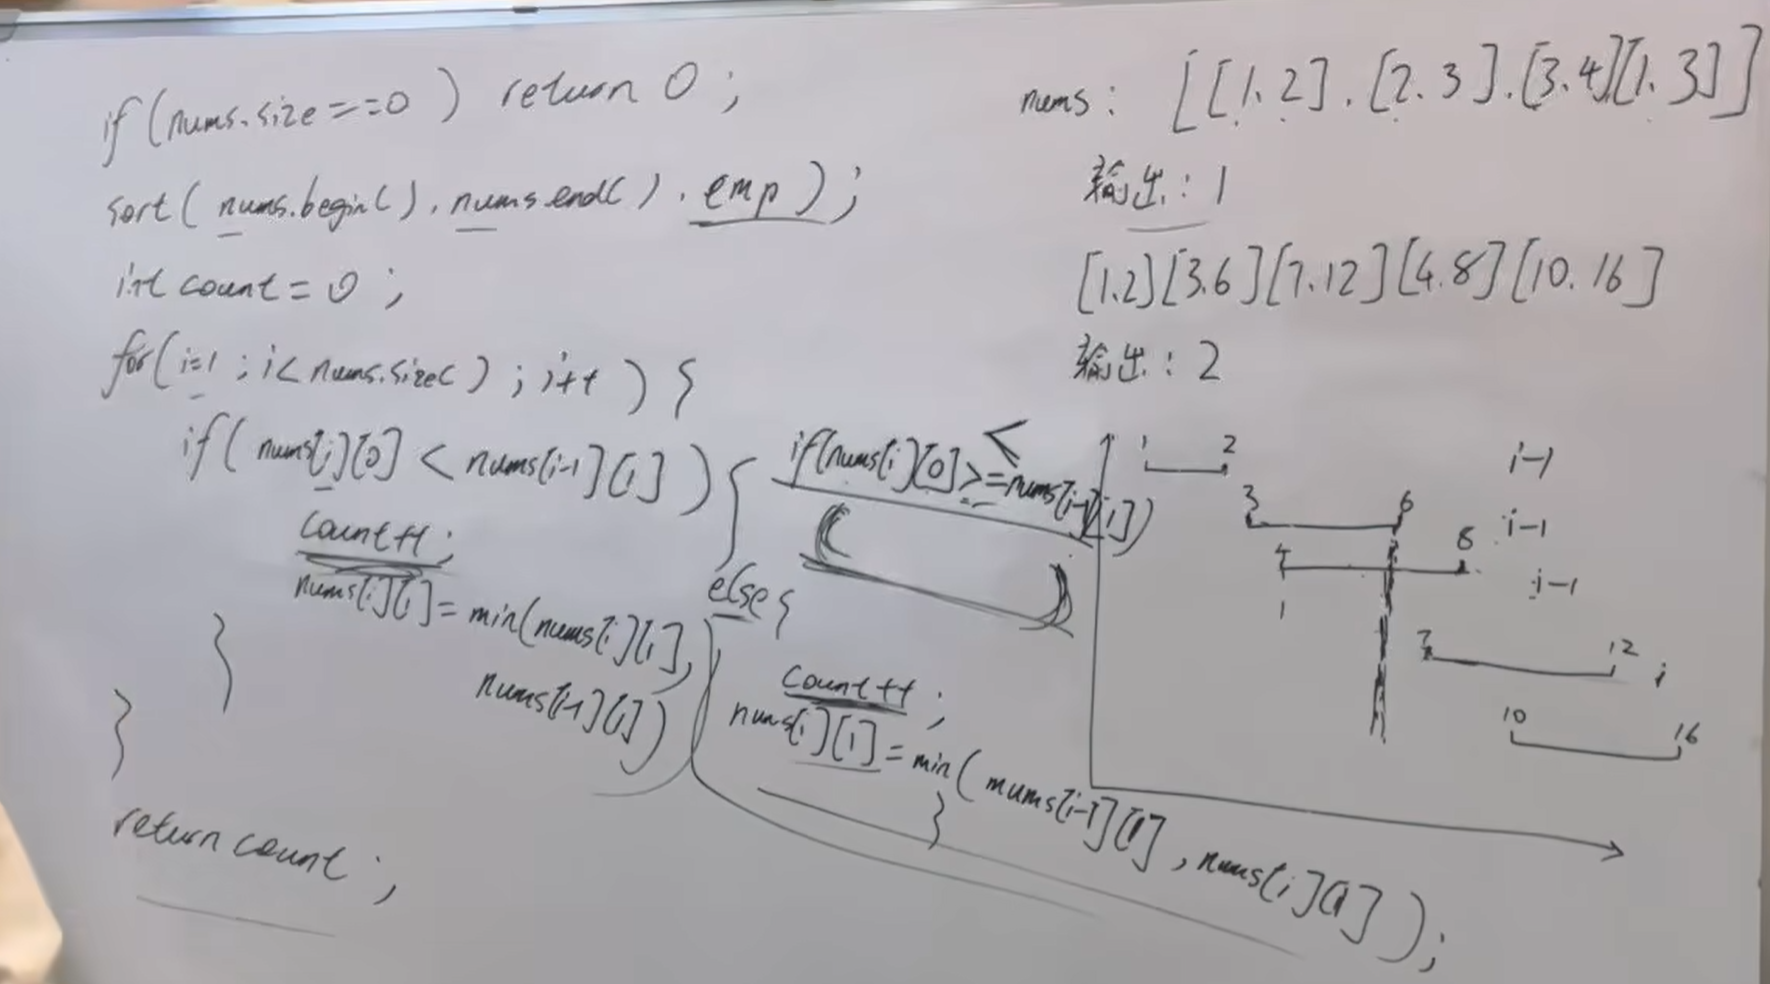 if(nums.size==0) return 0;
sort(nums.begin(),nums.end(),emp);
int count=0;
for(i=1;i<nums.size();i++){
if(nums[i][0]<nums[i-1][1]){
count++;
nums[i][1]=min(nums[i][1],
nums[i-1][1])
}
}
return count;
if(nums[i][0]>=nums[i-1][1])
<
else{
count++;
nums[i][1]=min(nums[i-1][1],nums[i][1]);
}
nums: [[1.2].[2.3].[3.4][1.3]]
输出:1
[1.2][3.6][7.12][4.8][10.16]
输出:2
1 2 i-1
3 6 i-1
4 8 i-1
1
7 12 i
10 16